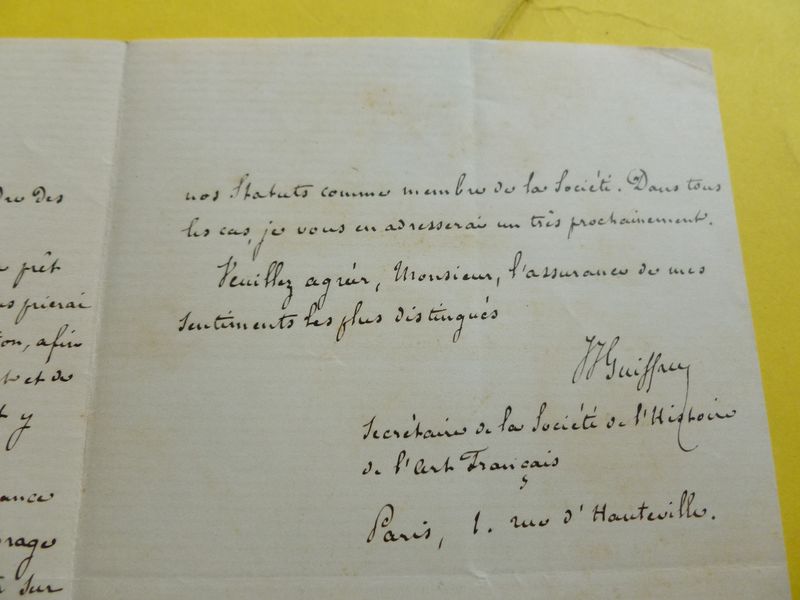 dre des
prêt
prierai
afin
et de
y
sur
nos Statuts comme membre de la Société. Dans tous
les cas, je vous en adresserai un très prochainement.
Veuillez agréer, Monsieur, l'assurance de mes
sentiments les plus distingués
JJ Guiffrey
Secrétaire de la Société de l'Histoire
de l'Art Français
Paris, 1. rue d'Hauteville.